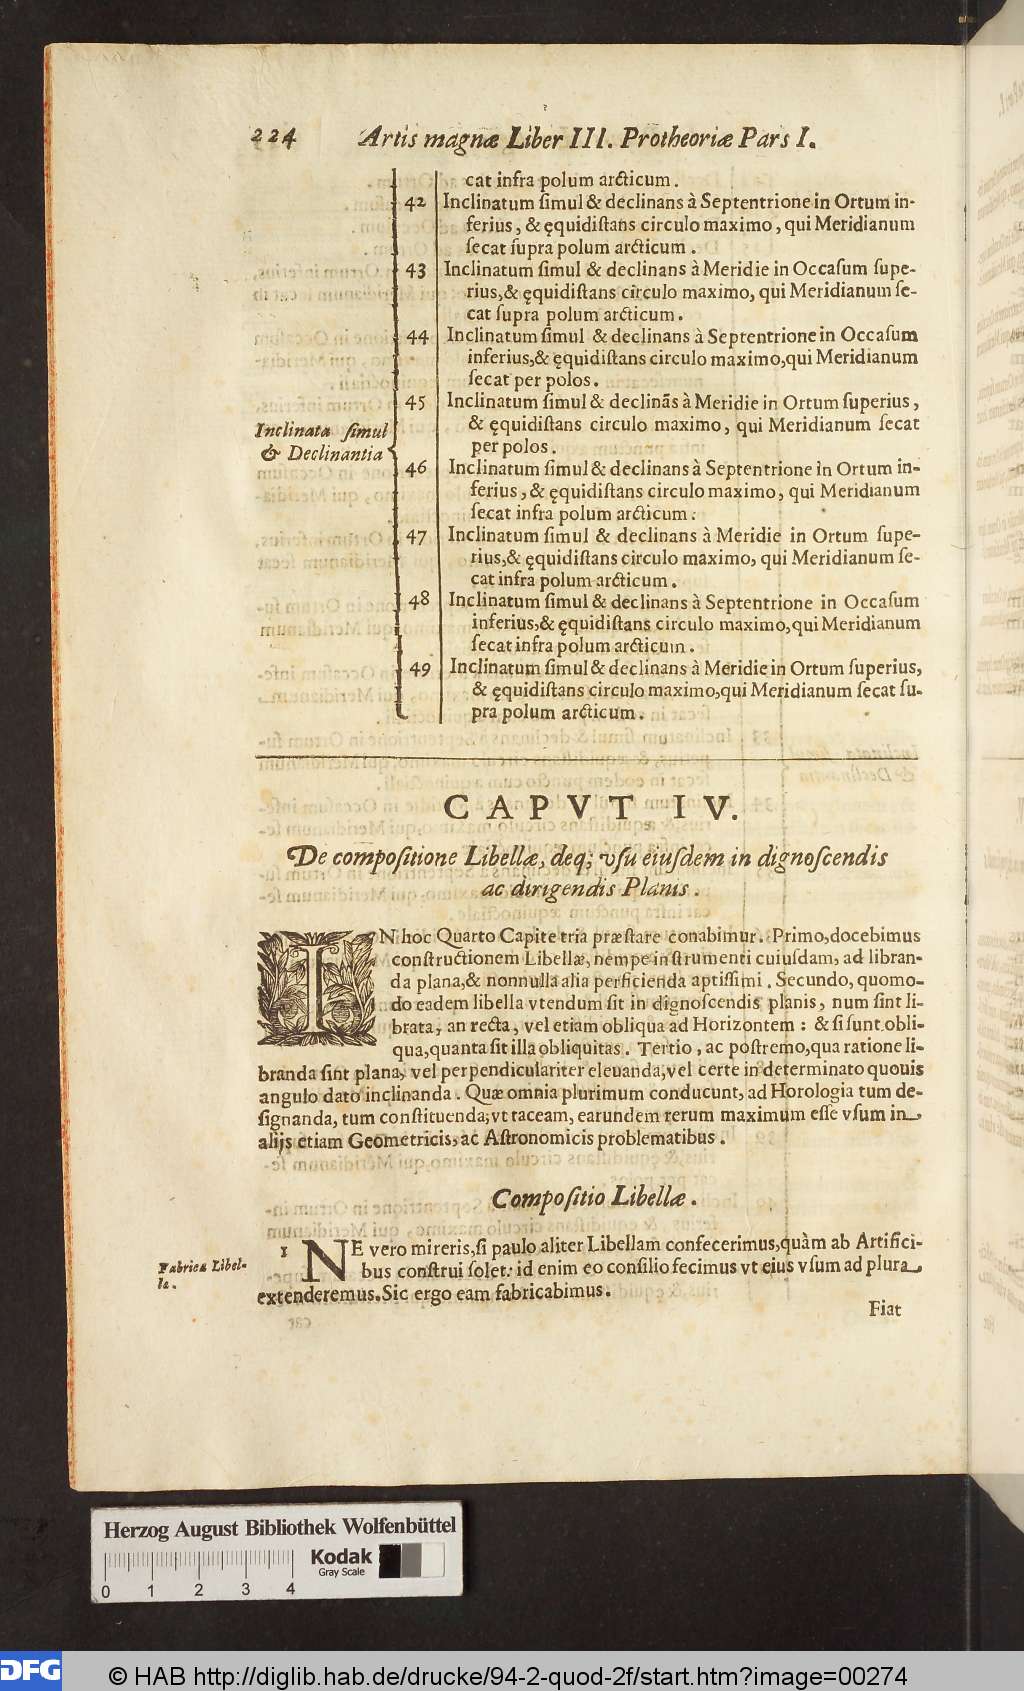 224 Artis magnæ Liber III. Protheoriæ Pars I.
cat infra polum arcticum.
42 Inclinatum ſimul & declinans à Septentrione in Ortum in-
ferius, & ęquidiſtans circulo maximo, qui Meridianum
ſecat ſupra polum arcticum.
43 Inclinatum ſimul & declinans à Meridie in Occaſum ſupe-
rius,& ęquidiſtans circulo maximo, qui Meridianum ſe-
cat ſupra polum arcticum.
44 Inclinatum ſimul & declinans à Septentrione in Occaſum
inferius,& ęquidiſtans circulo maximo,qui Meridianum
ſecat per polos.
45 Inclinatum ſimul & declinãs à Meridie in Ortum ſuperius,
& ęquidiſtans circulo maximo, qui Meridianum ſecat
per polos.
Inclinata ſimul
& Declinantia
46 Inclinatum ſimul & declinans à Septentrione in Ortum in-
ferius, & ęquidiſtans circulo maximo, qui Meridianum
ſecat infra polum arcticum.
47 Inclinatum ſimul & declinans à Meridie in Ortum ſupe-
rius,& ęquidiſtans circulo maximo, qui Meridianum ſe-
cat infra polum arcticum.
48 Inclinatum ſimul & declinans à Septentrione in Occaſum
inferius,& ęquidiſtans circulo maximo,qui Meridianum
ſecat infra polum arcticum.
49 Inclinatum ſimul & declinans à Meridie in Ortum ſuperius,
& ęquidiſtans circulo maximo,qui Meridianum ſecat ſu-
pra polum arcticum.
CAPVT IV.
De compoſitione Libellæ, deq; vſu eiuſdem in dignoſcendis
ac dirigendis Planis.
IN hoc Quarto Capite tria præſtare conabimur. Primo,docebimus
conſtructionem Libellæ, nempe inſtrumenti cuiuſdam, ad libran-
da plana,& nonnulla alia perficienda aptiſſimi. Secundo, quomo-
do eadem libella vtendum ſit in dignoſcendis planis, num ſint li-
brata, an recta, vel etiam obliqua ad Horizontem: & ſi ſunt obli-
qua,quanta ſit illa obliquitas. Tertio, ac poſtremo,qua ratione li-
branda ſint plana, vel perpendiculariter eleuanda,vel certe in determinato quouis
angulo dato inclinanda. Quæ omnia plurimum conducunt, ad Horologia tum de-
ſignanda, tum conſtituenda; vt taceam, earundem rerum maximum eſſe vſum in
alijs etiam Geometricis, ac Aſtronomicis problematibus.
Compoſitio Libellæ.
Fabrica Libel-
læ.
1 NE vero mireris,ſi paulo aliter Libellam confecerimus,quàm ab Artifici-
bus conſtrui ſolet: id enim eo conſilio fecimus vt eius vſum ad plura
extenderemus. Sic ergo eam fabricabimus.
Fiat
Herzog August Bibliothek Wolfenbüttel
Kodak
Gray Scale
0 1 2 3 4
DFG © HAB http://diglib.hab.de/drucke/94-2-quod-2f/start.htm?image=00274